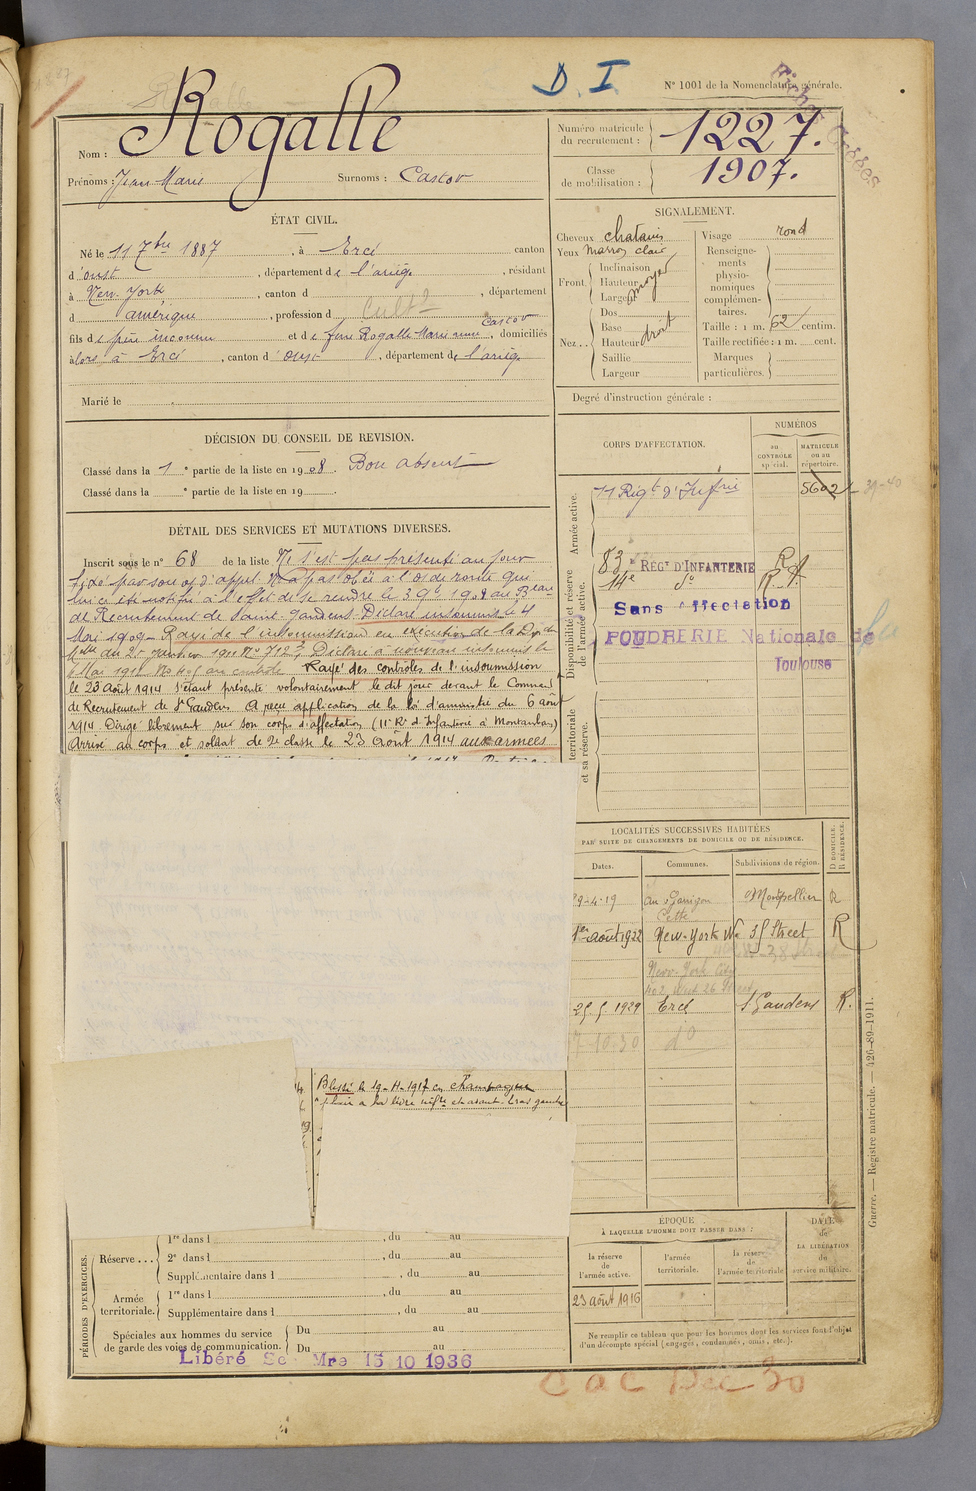 D. I
N° 1001 de la Nomenclature générale.
Fiches
Nom : Rogalle
Prénoms : Jean Marie Surnoms : Castor
Numéro matricule du recrutement : 1227.
Classe de mobilisation : 1907.
ÉTAT CIVIL.
Né le 11 7bre 1887, à Ercé canton
d'oust, département de l'ariège, résidant
à New. York, canton d , département
d amérique, profession d Cultr
fils de père inconnu et de feue Rogalle Marie anne Castor, domiciliés
alors à Ercé, canton d'oust, département de l'ariège
Marié le
SIGNALEMENT.
Cheveux chatains
Yeux marron clair
Front. Inclinaison
Hauteur moyen
Largeur
Nez... Dos
Base
Hauteur droit
Saillie
Largeur
Visage rond
Renseignements physionomiques complémentaires.
Taille : 1 m. 62 centim.
Taille rectifiée : 1 m. cent.
Marques particulières.
Degré d'instruction générale :
DÉCISION DU CONSEIL DE REVISION.
Classé dans la 1e partie de la liste en 1908. Bon absent
Classé dans la e partie de la liste en 19 .
DÉTAIL DES SERVICES ET MUTATIONS DIVERSES.
Inscrit sous le n° 68 de la liste Ne s'est pas présenté au jour
fixé par son o/ d'appel. N'a pas obéi à l'o/ de route qui
lui a été notifié à l'effet de se rendre le 3 9bre 1908 au Bureau
de Recrutement de Saint-Gaudens. Déclaré insoumis le 4
Mai 1909. Rayé de l'insoumission en exécution de la
du 2 Janvier Déclaré à nouveau insoumis le
6 Mai au contrôle Rayé des contrôles de l'insoumission
le 23 août 1914 s'étant présenté volontairement le dit jour devant le Command
de Recrutement de St Gaudens A reçu application de la loi d'amnistie du 6 août
1914 Dirigé librement sur son corps d'affectation (11e Rt d'Infanterie à Montauban)
Arrivé au corps et soldat de 2e classe le 23 Août 1914 aux armées
Blessé le 19-4-1917 en Champagne
plaie à la lèvre et avant-bras gauche
CORPS D'AFFECTATION.
NUMÉROS
au CONTRÔLE spécial.
MATRICULE ou au répertoire.
Armée active.
11 Régt d'Infrie 5602
39-40
Disponibilité et réserve de l'armée active.
83e RÉGt D'INFANTERIE
14e do
Sans Affectation
POUDRERIE Nationale de
Toulouse
territoriale et sa réserve.
LOCALITÉS SUCCESSIVES HABITÉES
PAR SUITE DE CHANGEMENTS DE DOMICILE OU DE RÉSIDENCE.
Dates. Communes. Subdivisions de région. D DOMICILE. R RÉSIDENCE.
9-4-19 Cette Montpellier R
1er août 1922 New-York W 38 Street R
New-York City
402 West 26 Street
25.5.1929 Ercé St Gaudens R.
7-10-30 do
ÉPOQUE
À LAQUELLE L'HOMME DOIT PASSER DANS :
la réserve de l'armée active.
l'armée territoriale.
la réserve de l'armée territoriale
DATE de LA LIBÉRATION du service militaire.
23 août 1916
Ne remplir ce tableau que pour les hommes dont les services font l'objet
d'un décompte spécial (engagés, condamnés, omis, etc.).
PÉRIODES D'EXERCICES.
Réserve ... 1re dans l , du au
2e dans l , du au
Supplémentaire dans l , du au
Armée territoriale. 1re dans l , du au
Supplémentaire dans l , du au
Spéciales aux hommes du service de garde des voies de communication. Du au
Du au
Libéré Sce Mre 15 10 1936
Guerre. — Registre matricule. — 426-89-1911.